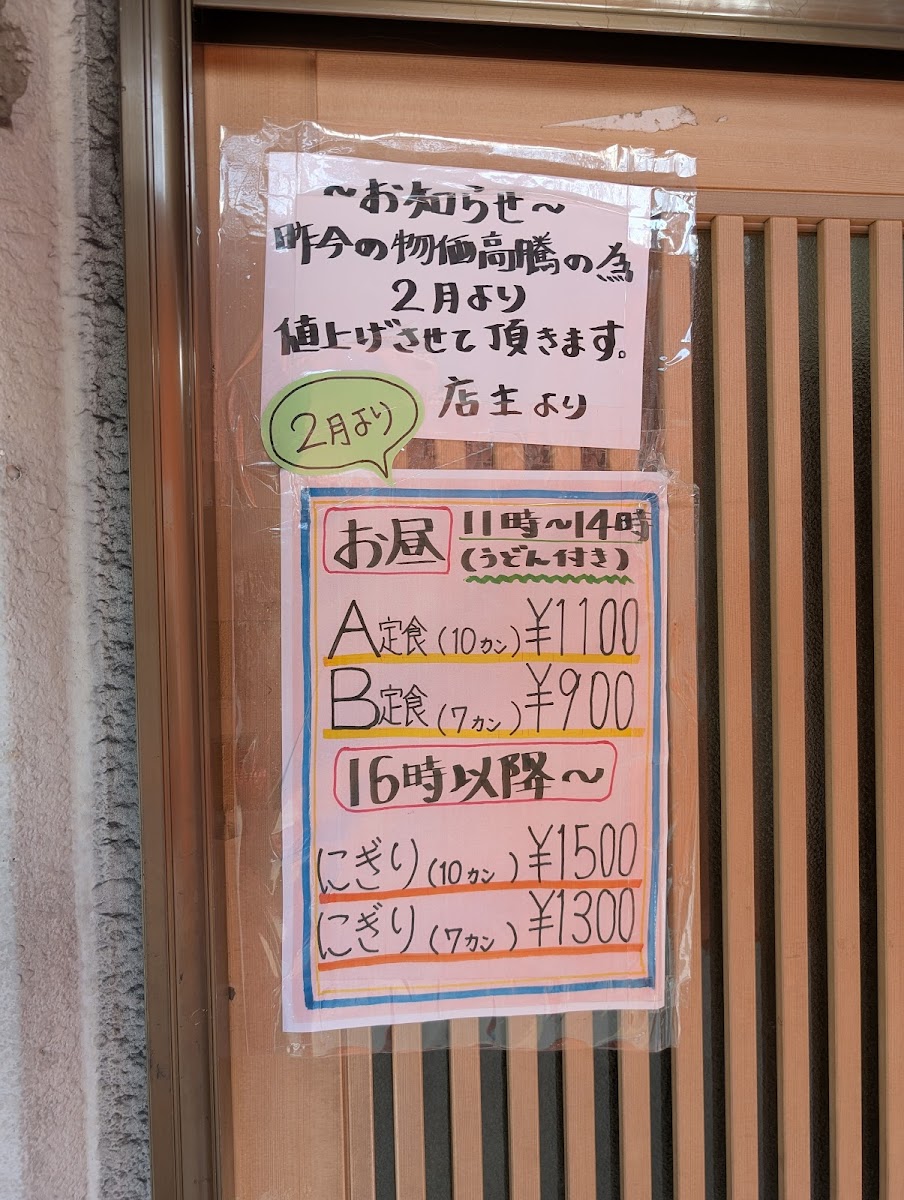 〜お知らせ〜
昨今の物価高騰の為
2月より
値上げさせて頂きます。
店主より
2月より
お昼 11時〜14時
(うどん付き)
A定食(10カン)¥1100
B定食(7カン)¥900
16時以降〜
にぎり(10カン)¥1500
にぎり(7カン)¥1300